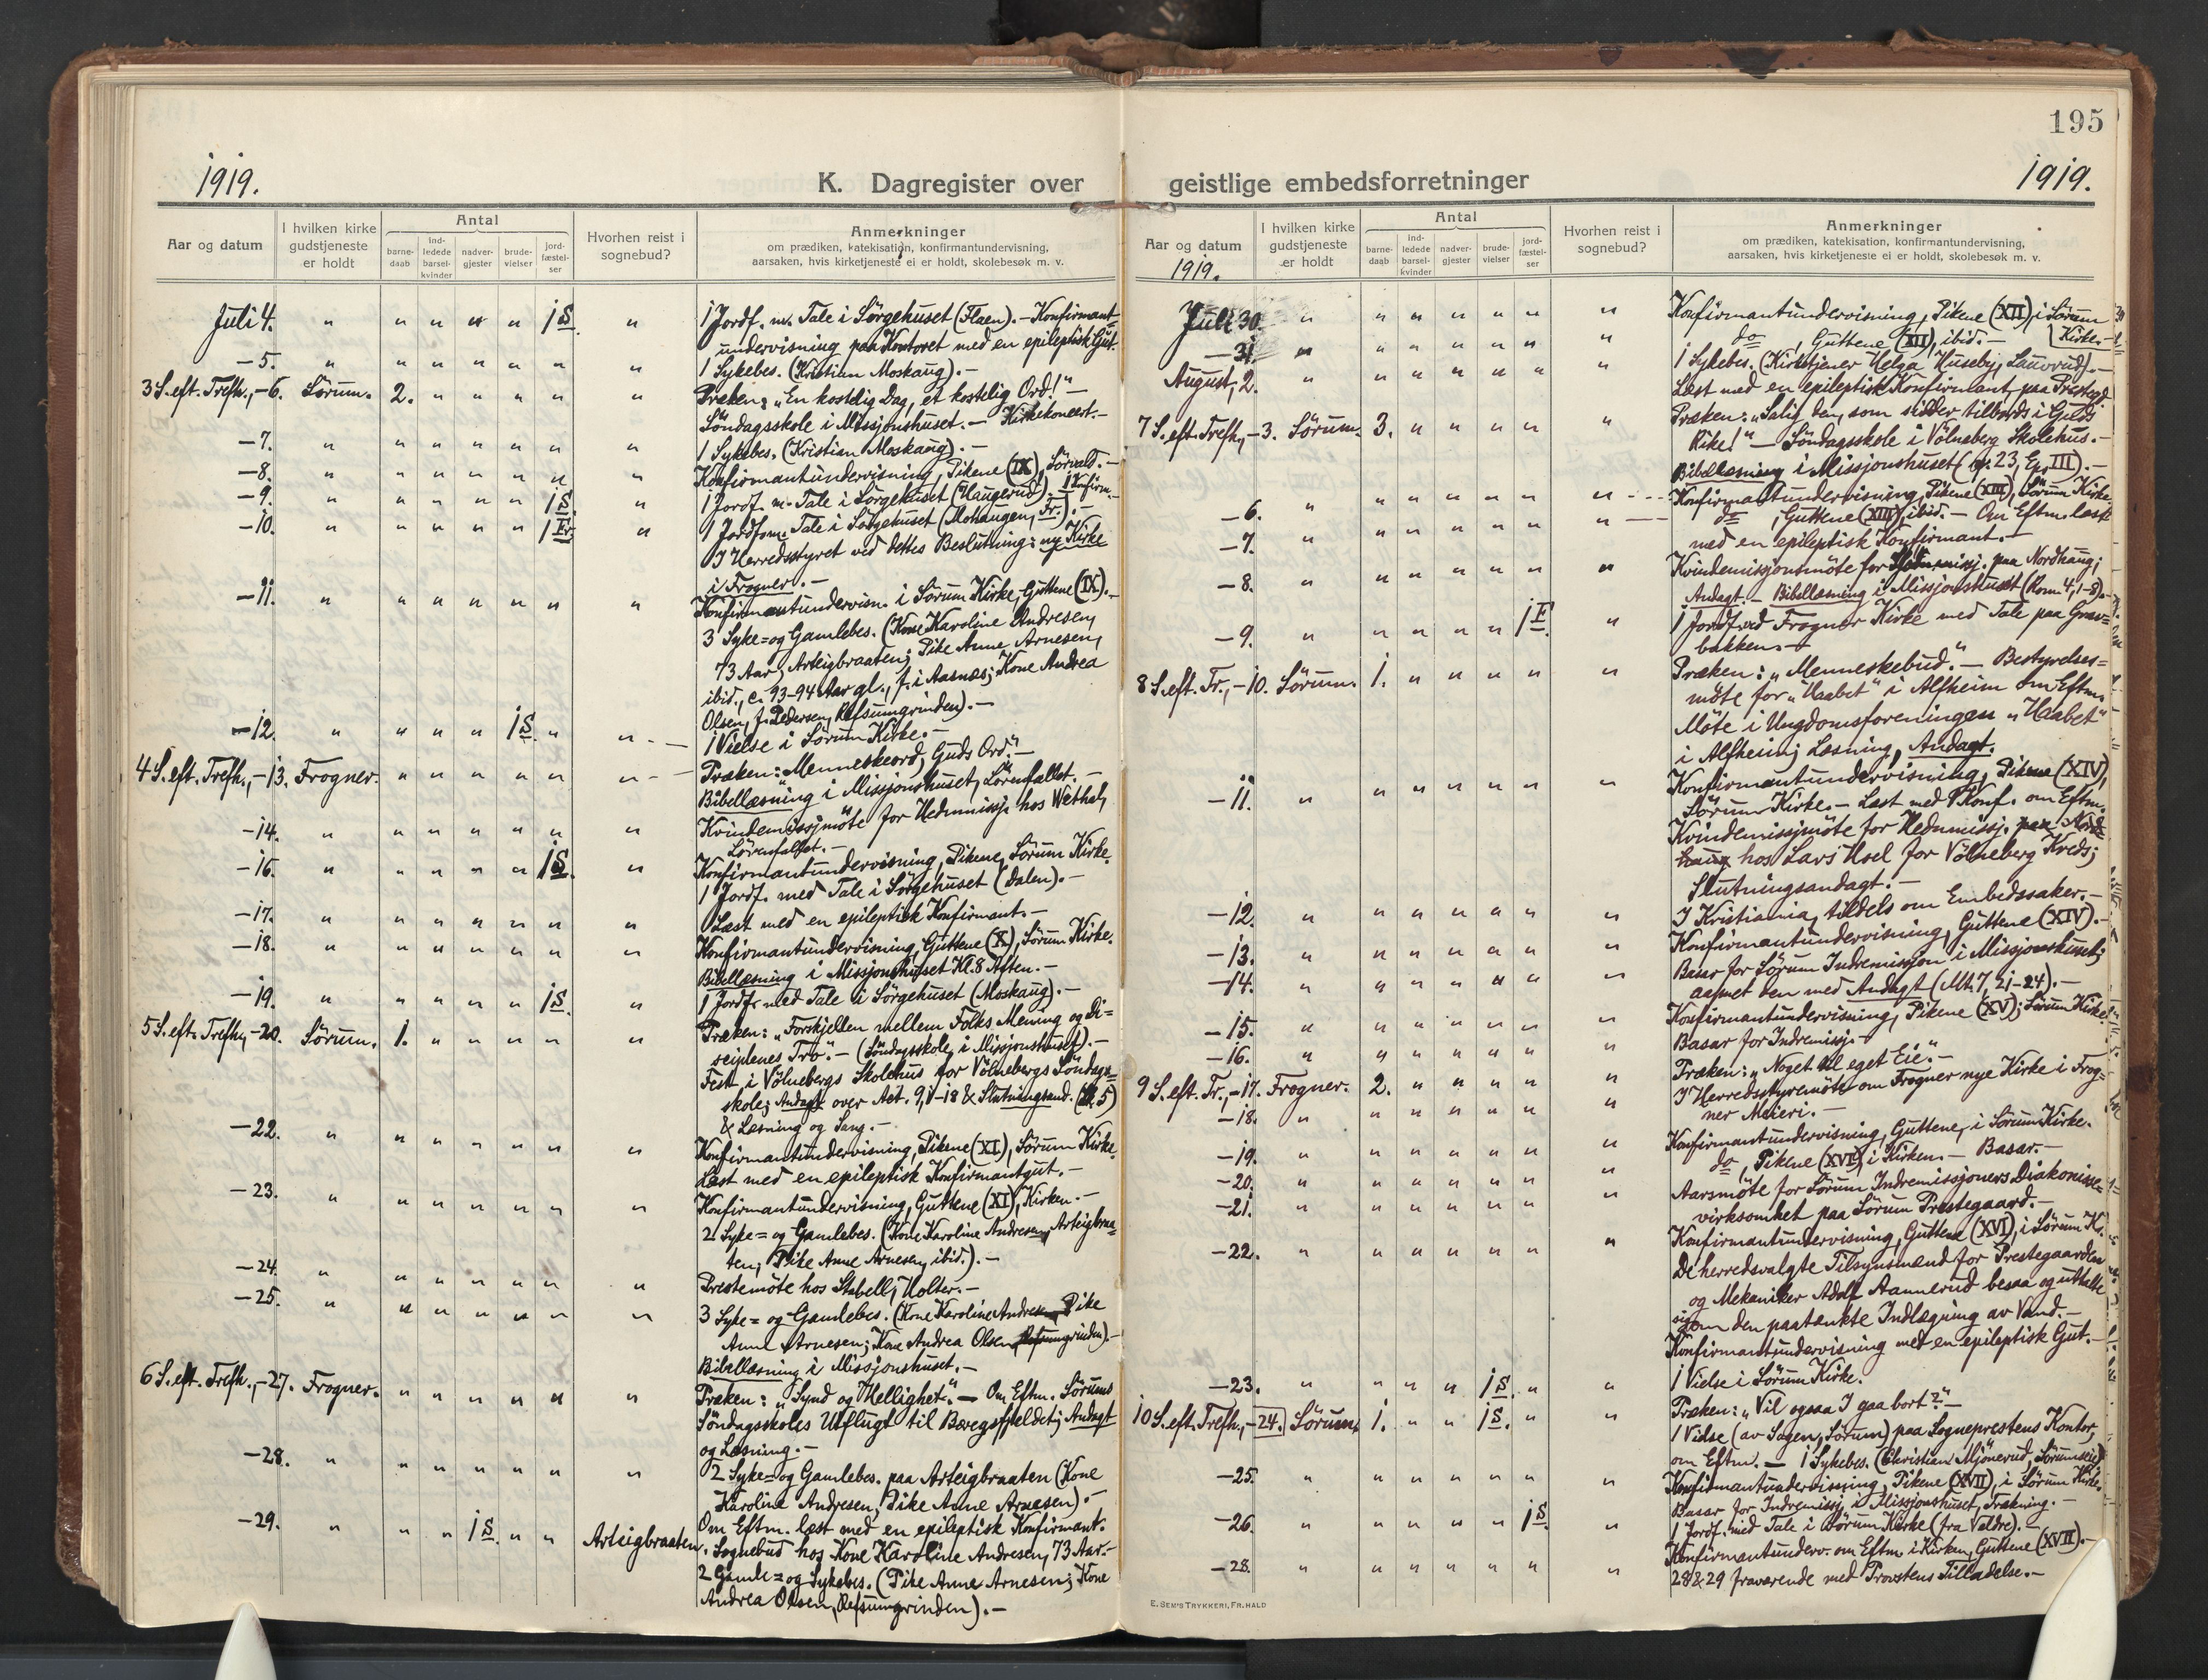 195
1919.
K. Dagregister over
geistlige embedsforretninger
1919.
Aar og datum
I hvilken kirke gudstjeneste er holdt
Antal
barne-daab
ind-ledede barsel-kvinder
nadver-gjester
brude-vielser
jord-fæstel-ser
Hvorhen reist i sognebud?
Anmerkninger
om prædiken, katekisation, konfirmantundervisning,
aarsaken, hvis kirketjeneste ei er holdt, skolebesøk m. v.
Juli 4. " " " " " 1 S. " 1 Jordf. m. Tale i Sörgehuset (Flaen). - Konfirmant-
undervisning paa Kontoret med en epileptisk Gut.
- 5. " " " " " " " 1 Sykebes. (Kristian Moskaug). -
3 S. eft. Trefh., - 6. Sörum. 2. " " " " " Præken: "En kostelig Dag, et kostelig Ord!" -
Söndagsskole i Missjonshuset. - Kirkekoncert. -
- 7. " " " " " " " 1 Sykebes. (Kristian Moskaug). -
- 8. " " " " " " " Konfirmantundervisning, Pikene (IX), Sörvald. -
- 9. " " " " " 1 S. " 1 Jordf. m. Tale i Sörgehuset (Haugerud); 1 Konfirm. -
- 10. " " " " " 1 Fr. " 1 Jordf. m. Tale i Sörgehuset (Mohaugen, Fr.). -
I Herredsstyret ved dettes Beslutning: ny Kirke
i Frogner. -
- 11. " " " " " " " Konfirmantundervisn. i Sörum Kirke, Guttene (IX). -
3 Syke= og Gamlebes. (Kone Karoline Andresen,
73 Aar, Arteigbraaten; Pike Anne Arnesen,
ibid., c. 93-94 Aar gl., f. i Aasnæs; Kone Andrea
Olsen, f. Pedersen, Refsumgrinden). -
- 12. " " " " 1 S. " " - - 1 Vielse i Sörum Kirke. -
4 S. eft. Trefh., - 13. Frogner. " " " " " " - - Præken: "Menneskeord, Guds Ord". -
Bibellæsning i Missjonshuset, Lörenfallet. -
- 14. " " " " " " " Kvindemissjmöte for Hedmmissj. hos Wethal,
Lörenfallet. -
- 16. " " " " " 1 S. " Konfirmantundervisning, Pikene, Sörum Kirke.
1 Jordf. med Tale i Sörgehuset (Dalen). -
- 17. " " " " " " " Læst med en epileptisk Konfirmant. -
- 18. " " " " " " " Konfirmantundervisning, Guttene (X), Sörum Kirke.
Bibellæsning i Missjonshuset Kl. 8 Aften. -
- 19. " " " " " 1 S. " 1 Jordf. med Tale i Sörgehuset (Moskaug). -
5 S. eft. Trefh., - 20. Sörum. 1. " " " " " Præken: "Forskjellen mellem Folks Mening og Di=
sciplenes Tro". - (Söndagsskole i Missjonshuset). -
Fest i Völnebergs Skolehus for Völnebergs Söndags=
skole; Andagt over Act. 9, 1-18 & Slutningsand. (
& Læsning og Sang. -
- 22. " " " " " " " Konfirmantundervisning, Pikene (XI), Sörum Kirke.
Læst med en epileptisk Konfirmantgut. -
- 23. " " " " " " " Konfirmantundervisning, Guttene (XI), Kirken. -
2 Syke= og Gamlebes. (Kone Karoline Andresen, Arteigbraa=
ten; Pike Anne Arnesen, ibid.). -
- 24. " " " " " " " Prestemöte hos Stabell, Holter. -
- 25. " " " " " " " 3 Syke= og Gamlebes. (Kone Karoline Andresen, Pike
Anne Arnesen; Kone Andrea Olsen, Refsumgrinden). -
Bibellæsning i Missjonshuset. -
6 S. eft. Trefh., - 27. Frogner. " " " " " " Præken: "Synd og Hellighet." - Om Eftm. Sörums
Söndagsskoles Utflugt til Bævegsfjeldet; Andagt
og Læsning. -
- 28. " " " " " " " 2 Syke= og Gamlebes. paa Arteigbraaten (Kone
Karoline Andresen, Pike Anne Arnesen). -
- 29. " " " 1 S. " " Arteigbraaten. Om Eftm. læst med en epileptisk Konfirmant.
Sognebud hos Kone Karoline Andresen, 73 Aar. -
2 Gamle= og Sykebes. (Pike Anne Arnesen; Kone
Andrea Olsen, Refsumgrinden). -
Aar og datum
1919.
I hvilken kirke gudstjeneste er holdt
Antal
barne-daab
ind-ledede barsel-kvinder
nadver-gjester
brude-vielser
jord-fæstel-ser
Hvorhen reist i sognebud?
Anmerkninger
om prædiken, katekisation, konfirmantundervisning,
aarsaken, hvis kirketjeneste ei er holdt, skolebesøk m. v.
Juli 30. " " " " " " " Konfirmantundervisning, Pikene (XII), i Sörum
Kirke. -
- 31. " " " " " " " do , Guttene (XII), ibid. -
August, 2. " " " " " " " 1 Sykebes. (Kirketjener Helga Huseby, Lauvrud). -
Læst med en epileptisk Konfirmant, paa Prestegd.
7 S. eft. Trefh., - 3. Sörum. 3. " " " " " Præken: "Salig den, som sidder tilbords i Guds
Rike!" - Söndagsskole i Völneberg Skolehus. -
Bibellæsning i Missjonshuset ( 23, Ep. III). -
- 6. " " " " " " " - - - Konfirmantundervisning, Pikene (XIII), Sörum Kirke.
- 7. " " " " " " " - - do , Guttene (XIII), ibid. - Om Eftm. læst
med en epileptisk Konfirmant. -
- 8. " " " " " " " Kvindemissjonsmöte for paa Nordhaug;
Andagt. - Bibellæsning i Missjonshuset (Rom. 4, 1-8). -
- 9. " " " " " 1 F. " 1 Jordf. ved Frogner Kirke med Tale paa Grav=
bakken. -
8 S. eft. Tr., - 10. Sörum. 1. " " " " " Præken: "Menneskebud." - Bestyrelses=
möte for "Haabet" i Alfheim om Eftm.
Möte i Ungdomsforeningen "Haabet"
i Alfheim; Læsning, Andagt.
- 11. " " " " " " " Konfirmantundervisning, Pikene (XIV),
Sörum Kirke. - Læst med 1 Konf. om Eftm.
Kvindemissjmöte for Hedmmissj. paa Nord=
haug hos Lars Usel for Völneberg Kreds;
Slutningsandagt. -
- 12. " " " " " " " I Kristiania, tildels om Embedssaker. -
- 13. " " " " " " " Konfirmantundervisning, Guttene (XIV). -
- 14. " " " " " " " Basar for Sörum Indremissjon i Missjonshuset;
aapnet den med Andagt (Mt. 7, 21-24). -
- 15. " " " " " " " Konfirmantundervisning, Pikene (XV); Sörum Kirke.
- 16. " " " " " " " Basar for Indremissj. -
9 S. eft. Tr., - 17. Frogner. 2. " " " " " Præken: "Noget til eget Eie". -
- 18. " " " " " " " I Herredsstyremöte om Frogner nye Kirke i Frog=
ner Meieri. -
- 19. " " " " " " " Konfirmantundervisning, Guttene, i Sörum Kirke.
- 20. " " " " " " " do , Pikene (XVI), i Kirken. - Basar. -
- 21. " " " " " " " Aarsmöte for Sörum Indremissjoners Diakonisse=
virksomhet paa Sörum Prestegaard. -
- 22. " " " " " " " Konfirmantundervisning, Guttene (XVI), i Sörum K.
De herredsvalgte Tilsynsmænd for Prestegaarden
og Mekaniker Adolf Aannerud besaa og uttalte
sig om den paatænkte Indlægning av Vand. -
Konfirmantundervisning med en epileptisk Gut. -
- 23. " " " " 1 S. " " 1 Vielse i Sörum Kirke.
10 S. eft. Trefh., - 24. Sörum. 1. " " 1 S. " " Præken: "Vil ogsaa I gaa bort?" -
1 Vielse (av Sagen, Sörum) paa Sogneprestens Kontor,
om Eftm. - 1 Sykebes. (Christian Mjönerud, Sörumseie).
- 25. " " " " " " " Konfirmantundervisning, Pikene (XVII), i Sörum Kirke.
Basar for Indremissj. i Missjonshuset, Trækning. -
- 26. " " " " " 1 S. " 1 Jordf. med Tale i Sörum Kirke (fra Valdre). -
Konfirmantunderv. om Eftm. i Kirken, Guttene (XVII). -
- 28. " " " " " " " 28 & 29 fraværende med Provstens Tilladelse. -
E. SEM'S TRYKKERI, FR.HALD